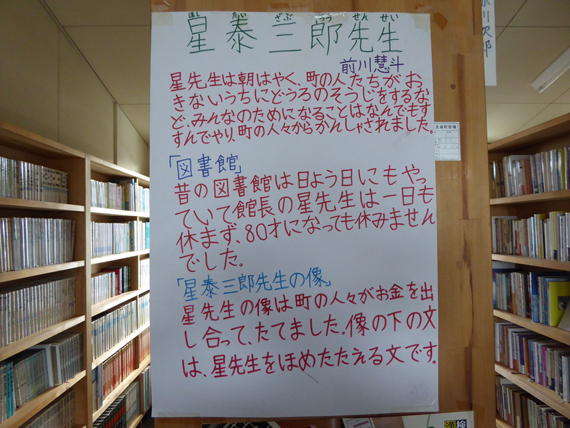 星泰三郎先生
前川慧斗
星先生は朝はやく、町の人たちがお
きないうちにどうろのそうじをするな
ど、みんなのためになることはなんでもす
すんでやり、町の人々からかんしゃされました。
「図書館」
昔の図書館は日よう日にもやっ
ていて館長の星先生は一日も
休まず、80才になっても休みません
でした。
「星泰三郎先生の像」
星先生の像は町の人々がお金を出
し合って、たてました。像の下の文
は、星先生をほめたたえる文です。